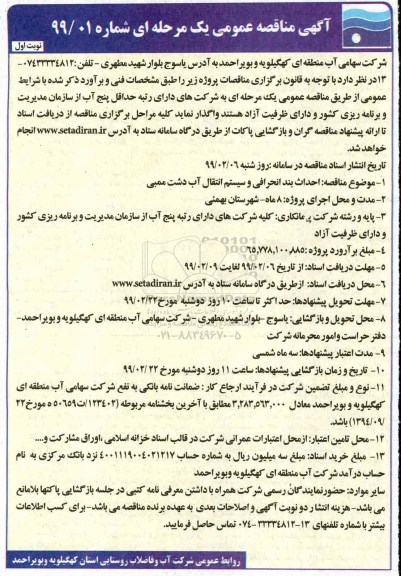 آگهی مناقصه عمومی یک مرحله ای شماره ۹۹/۰۱
نوبت اول
شرکت سهامی آب منطقه ای کهگیلویه و بویراحمد به آدرس یاسوج بلوار شهید مطهری - تلفن: ۰۷۴۳۳۳۳۴۸۱۲-
۱۳ در نظر دارد با توجه به قانون برگزاری مناقصات پروژه زیر را طبق مشخصات فنی و برآورد ذکر شده با شرایط
عمومی از طریق مناقصه عمومی یک مرحله ای به شرکت های دارای رتبه حداقل پنج آب از سازمان مدیریت
و برنامه ریزی کشور و دارای ظرفیت آزاد هستند واگذار نماید کلیه مراحل برگزاری مناقصه از دریافت اسناد
تا ارائه پیشنهاد مناقصه گران و بازگشایی پاکات از طریق درگاه سامانه ستاد به آدرس www.setadiran.ir انجام
خواهد شد.
تاریخ انتشار اسناد مناقصه در سامانه: روز شنبه ۹۹/۰۲/۰۶
۱- موضوع مناقصه: احداث بند انحرافی و سیستم انتقال آب دشت ممبی
۲- مدت و محل اجرای پروژه: ۸ ماه- شهرستان بهمئی
۳- پایه و رشته شرکت پیمانکاری: کلیه شرکت های دارای رتبه پنج آب از سازمان مدیریت و برنامه ریزی کشور و
و دارای ظرفیت آزاد
۴- مبلغ برآورد پروژه: ۶۵,۷۷۸,۱۰۰,۸۸۵
۵- مهلت دریافت اسناد: از تاریخ ۹۹/۰۲/۰۶ لغایت ۹۹/۰۲/۰۹
۶- محل دریافت اسناد: از طریق درگاه سامانه ستاد به آدرس www.setadiran.ir
۷- مهلت تحویل پیشنهادها: حداکثر تا ساعت ۱۰ روز دوشنبه مورخ ۹۹/۰۲/۲۲
۸- محل تحویل و بازگشایی: یاسوج - بلوار شهید مطهری - شرکت سهامی آب منطقه ای کهگیلویه و بویراحمد-
دفتر حراست و امور محرمانه شرکت
۹- مدت اعتبار پیشنهادها: سه ماه شمسی
۱۰- تاریخ و زمان بازگشایی پیشنهادها: ساعت ۱۱ روز دوشنبه مورخ ۹۹/۰۲/۲۲
۱۱- نوع و مبلغ تضمین شرکت در فرآیند ارجاع کار: ضمانت نامه بانکی به نفع شرکت سهامی آب منطقه ای
کهگیلویه و بویراحمد معادل ۳,۲۸۳,۵۶۳,۰۰۰ مطابق با آخرین بخشنامه مربوطه (۱۲۳۴۰۲/ت۵۰۶۵۹ ه مورخ ۲۲
/۰۹/۱۳۹۴) باشد.
۱۲- محل تامین اعتبار: از محل اعتبارات عمرانی شرکت در قالب اسناد خزانه اسلامی، اوراق مشارکت و....
۱۳- مبلغ خرید اسناد: مبلغ سه میلیون ریال به شماره حساب ۴۰۰۱۱۱۹۰۰۴۰۲۱۲۱۷ نزد بانک مرکزی به نام
حساب درآمد شرکت آب منطقه ای کهگیلویه و بویراحمد
سایر موارد: حضور نمایندگان رسمی شرکت همراه با داشتن معرفی نامه کتبی در جلسه بازگشایی پاکتها بلامانع
می باشد- هزینه انتشار دو نوبت آگهی و اصلاحات بعدی به عهده برنده مناقصه می باشد- برای کسب اطلاعات
بیشتر با شماره تلفنهای ۱۳-۳۳۳۳۴۸۱۲-۰۷۴ تماس حاصل فرمایید.
روابط عمومی شرکت آب و فاضلاب روستایی استان کهگیلویه و بویراحمد